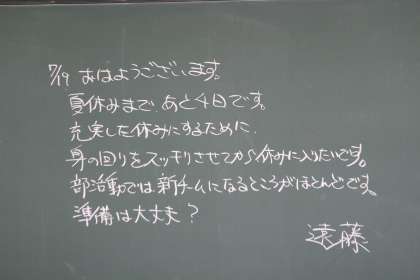 7/19 おはようございます。
夏休みまで あと4日です。
充実した休みにするために、
身の回りをスッキリさせてから休みに入りたいです。
部活動では新チームになるところがほとんどです。
準備は大丈夫？
遠藤